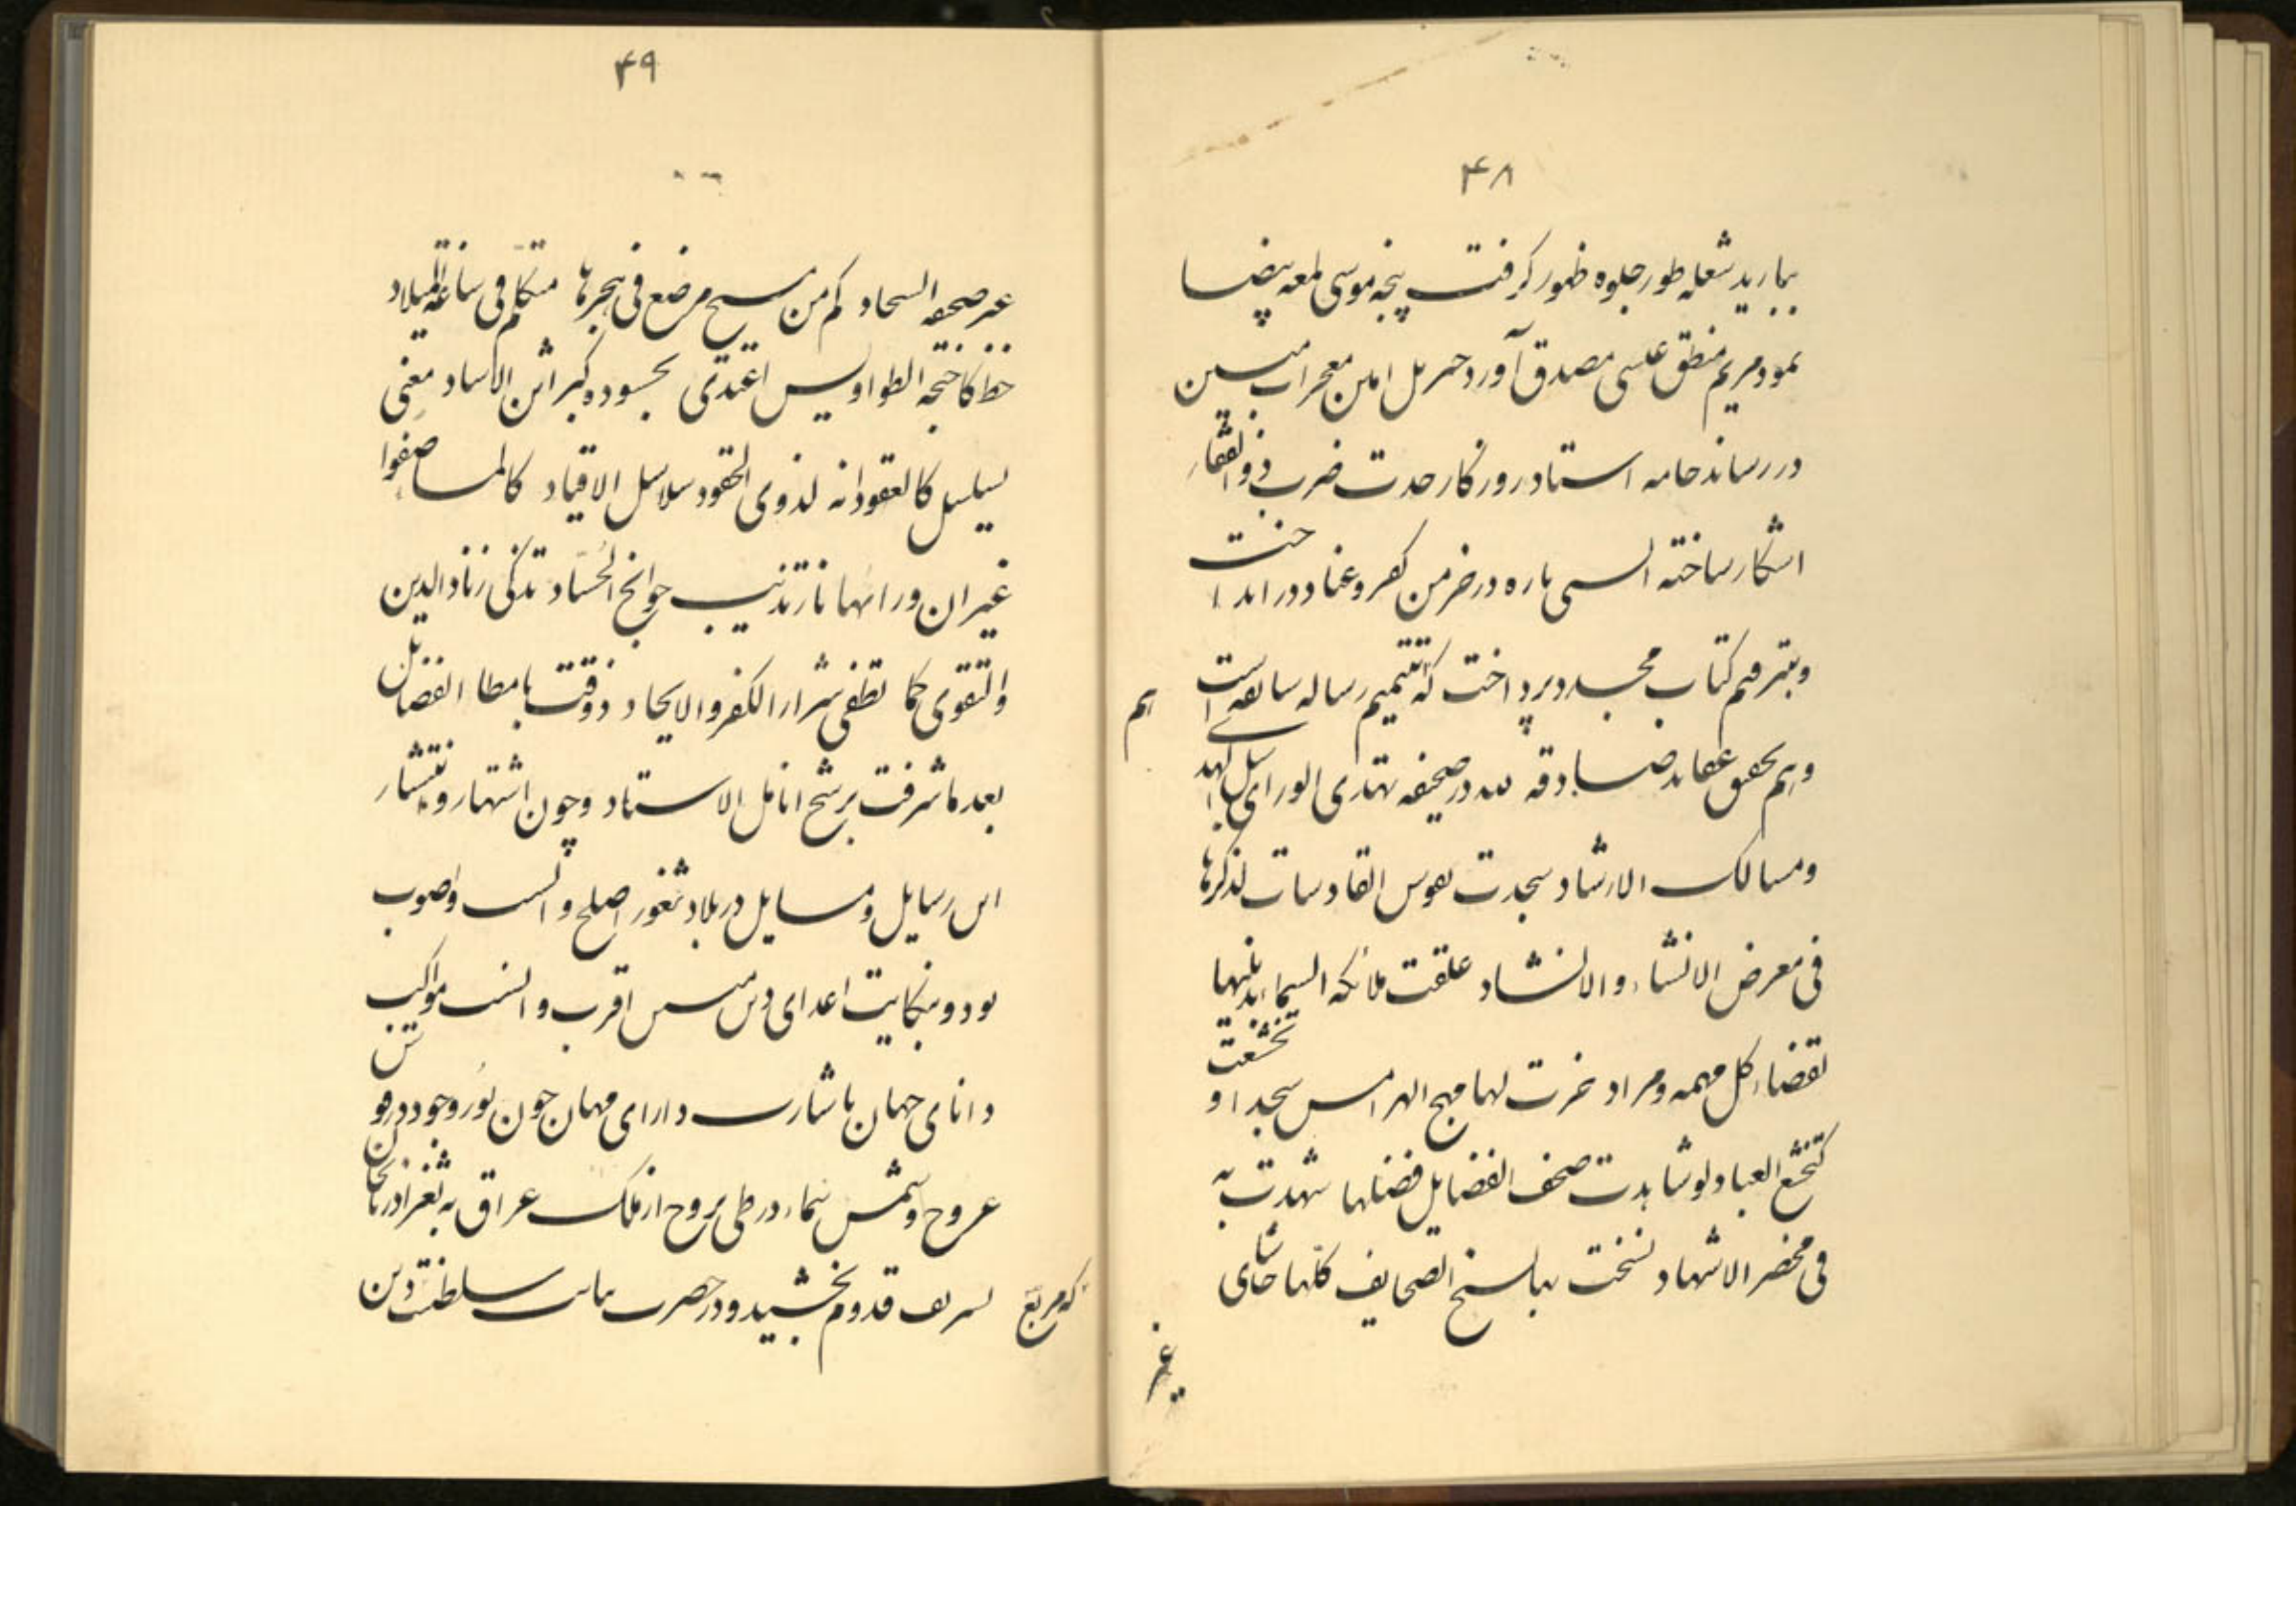 ۴۸
ببارید شعله طور جلوه ظهور کرفت پنجه موسی لمعه بیضا
نمود مریم منطق عیسی مصدق آورد جبریل امین معجزات مبین
در رساند خامه استاد روزکار حدت ضرب ذوالفقار
اشکار ساخته الس باره در خرمن کفر و عناد در انداخت
و بترقیم کتاب مجدد پرداخت که تتمیم رساله سابقه است
هم
و هم تحقیق عقاید صادقه در صحیفه تهدی الوری سبل الهدی
و مسالک الارشاد سجدت نفوس القادسات لذکرها
فی معرض الانشاء و الانشاد علقت ملائکه السما
لقضاء کل مهمه و مراد خرت لها مهج الهرامس سجدا و تخشعت
کتخشع العباد لو شاهدت صحف الفضایل فضلها شهدت به
فی محضر الاشهاد نسخت بها نسخ الصحایف کلها حاشای
غیر
۴۹
غیر صحیفه السجاد کم من مسیح مرضع فی حجرها متکلم فی ساعة المیلاد
خط کاجنحه الطواویس اغتدی
سلسل کالعقود انه لذوی الحقود سلاسل الاقیاد
غیر ان ورائها نار تذیب جوانح الحساد تذکی زناد الدین
والتقوی کما تطفی شرار الکفر والالحاد الفضائل
بعد ما شرفت برشح انامل الاستاد و چون اشتهار و انتشار
این رسایل و مسایل در بلاد ثغور اصلح و انسب و اصوب
بود و بنکایت اعدای دین مبین اقرب و انسب مواکب
دانای جهان باشارت دارای مهان چون نور وجود در قوس
عروج و شمس سماء در طی بروج از ملک عراق به ثغر اذربایجان
که مربع
تشریف قدوم بخشید و در حضرت نیابت سلطنت دین